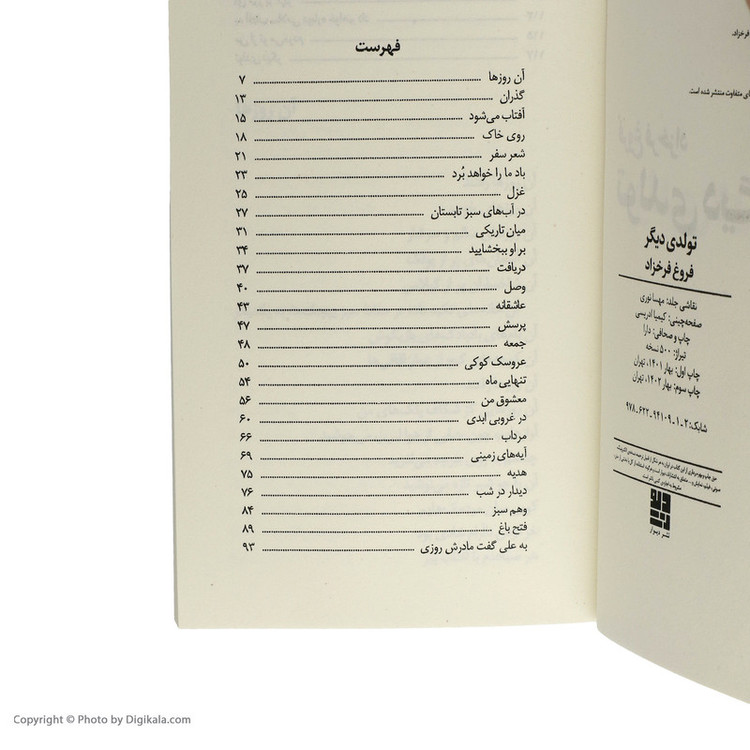 فرخزاد.
ای متفاوت منتشر شده است.
تولدی دیگر
فروغ فرخزاد
نقاشی جلد: مهسا نوری
صفحه‌چینی: کیمیا ادریسی
چاپ و صحافی: دارا
تیراژ: ۵۰۰ نسخه
چاپ اول: بهار ۱۴۰۱، تهران
چاپ سوم: بهار ۱۴۰۲، تهران
شابک: ۲-۱-۹۴۱۰۹-۶۲۲-۹۷۸
نشر دیوار
فهرست
آن روزها ۷
گذران ۱۳
آفتاب می‌شود ۱۵
روی خاک ۱۸
شعر سفر ۲۱
باد ما را خواهد بُرد ۲۳
غزل ۲۵
در آب‌های سبز تابستان ۲۷
میان تاریکی ۳۱
بر او ببخشایید ۳۴
دریافت ۳۷
وصل ۴۰
عاشقانه ۴۳
پرسش ۴۷
جمعه ۴۸
عروسک کوکی ۵۰
تنهایی ماه ۵۴
معشوق من ۵۶
در غروبی ابدی ۶۰
مرداب ۶۶
آیه‌های زمینی ۶۹
هدیه ۷۵
دیدار در شب ۷۶
وهم سبز ۸۴
فتح باغ ۸۹
به علی گفت مادرش روزی ۹۳
Copyright © Photo by Digikala.com